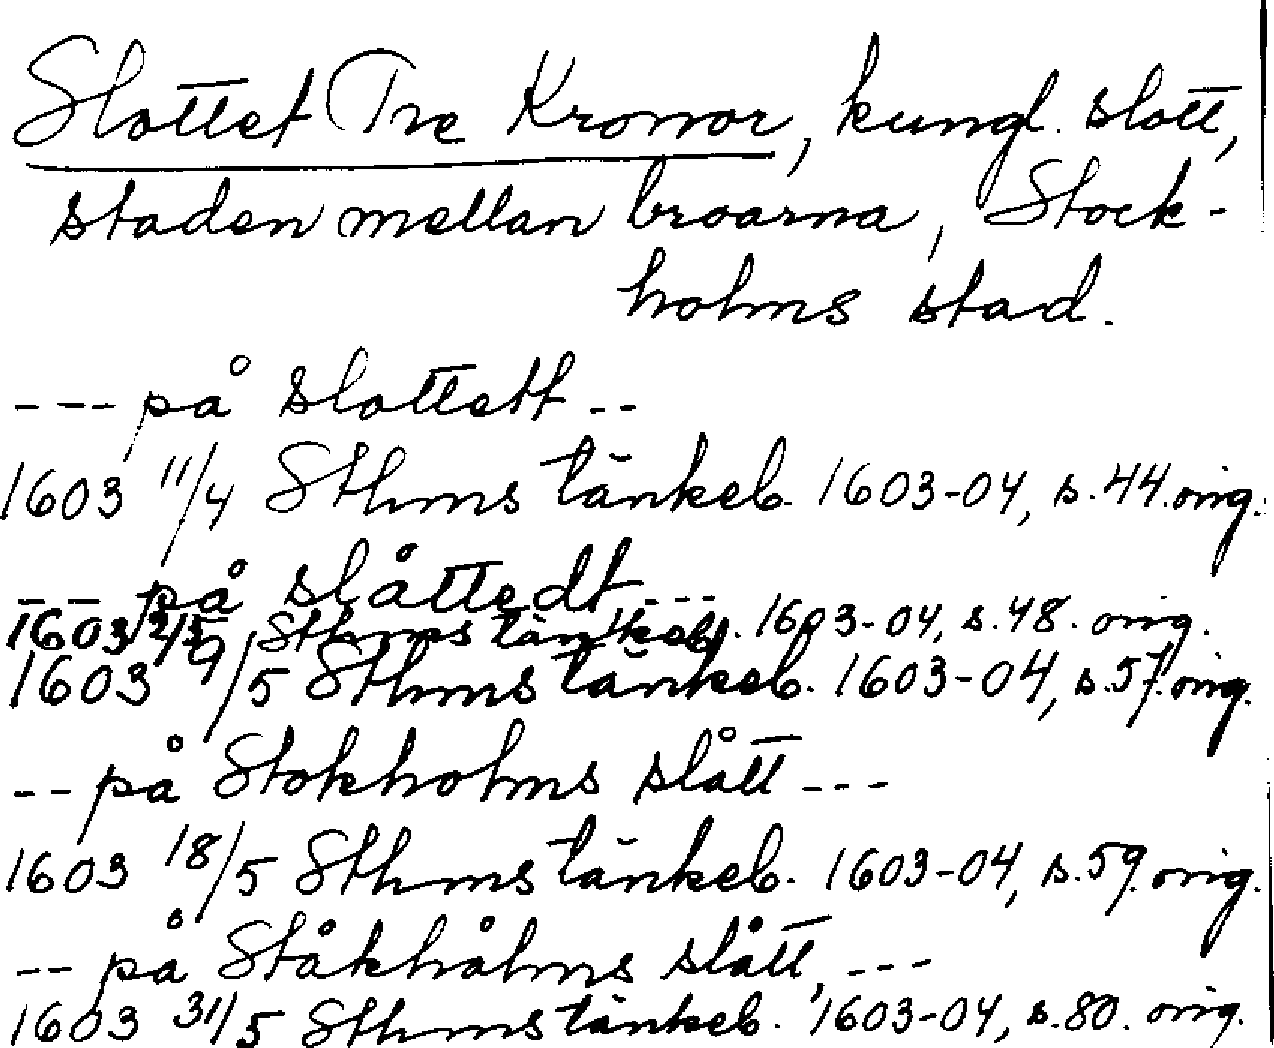 Slottet Tre Kronor, kungl. slott,
staden mellan broarna, Stock-
holms stad.
--- på slottett --
1603 11/4 Sthms tänkeb. 1603-04, s.44.orig.
-- på slåttedt ---
1603 Sthms tänkeb. 1603-04, s.48. orig.
1603 9/5 Sthms tänkeb. 1603-04, s.57.orig.
-- på Stokholms slått ---
1603 18/5 Sthms tänkeb. 1603-04, s.59.orig.
-- på Ståkhålms slått, ---
1603 31/5 Sthms tänkeb. 1603-04, s.80. orig.